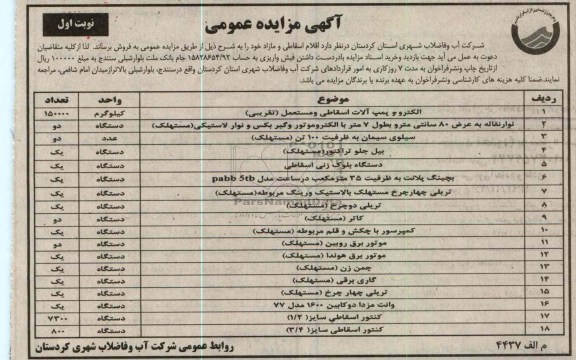 آگهی مزایده عمومی
نوبت اول
شرکت آب وفاضلاب شهری استان کردستان درنظر دارد اقلام اسقاطی و مازاد خود را به شرح ذیل از طریق مزایده عمومی به فروش برساند. لذا ازکلیه متقاضیان
دعوت به عمل می آید جهت بازدید وخرید اسناد مزایده بادردست داشتن فیش واریزی به حساب ۱۵۸۲۸۶۵۴/۹۲ جام بانک ملت بلوارشبلی سنندج به مبلغ ۱۰۰۰۰۰ ریال
ازتاریخ چاپ ونشرفراخوان به مدت ۷ روزکاری به امور قراردادهای شرکت آب وفاضلاب شهری استان کردستان واقع درسنندج، بلوارشبلی بالاترازمیدان امام شافعی، مراجعه
نمایند.ضمنا کلیه هزینه های کارشناسی ونشرفراخوان به عهده برنده یا برندگان مزایده می باشد.
ردیف موضوع واحد تعداد
۱ الکترو و پمپ آلات اسقاطی ومستعمل (تقریبی) کیلوگرم ۱۵۰۰۰۰
۲ نوارنقاله به عرض ۸۰ سانتی مترو بطول ۷ متر با الکتروموتور وگیر بکس و نوار لاستیکی(مستهلک) دستگاه دو
۳ سیلوی سیمان به ظرفیت ۱۰۰ تن (مستهلک) عدد دو
۴ بیل جلو تراکتور(مستهلک) دستگاه یک
۵ دستگاه بلوک زنی اسقاطی دستگاه یک
۶ بچینگ پلانت به ظرفیت ۳۵ مترمکعب درساعت مدل pabb 5tb دستگاه یک
۷ تریلی چهارچرخ مستهلک بالاستیک ورینگ مربوطه(مستهلک) دستگاه یک
۸ تریلی دوچرخ (مستهلک) دستگاه یک
۹ کاتر (مستهلک) دستگاه دو
۱۰ کمپرسور با چکش و قلم مربوطه (مستهلک) دستگاه یک
۱۱ موتور برق روبین (مستهلک) دستگاه دو
۱۲ موتور برق هوندا (مستهلک) دستگاه یک
۱۳ چمن زن (مستهلک) دستگاه یک
۱۴ گاری برقی (مستهلک) دستگاه یک
۱۵ تریلی چهار چرخ (مستهلک) دستگاه یک
۱۶ وانت مزدا دوکابین ۱۶۰۰ مدل ۷۷ دستگاه یک
۱۷ کنتور اسقاطی سایز( ۱/۲) دستگاه ۷۳۰۰
۱۸ کنتور اسقاطی سایز( ۳/۴) دستگاه ۸۰۰
م الف ۴۴۳۷
روابط عمومی شرکت آب وفاضلاب شهری کردستان